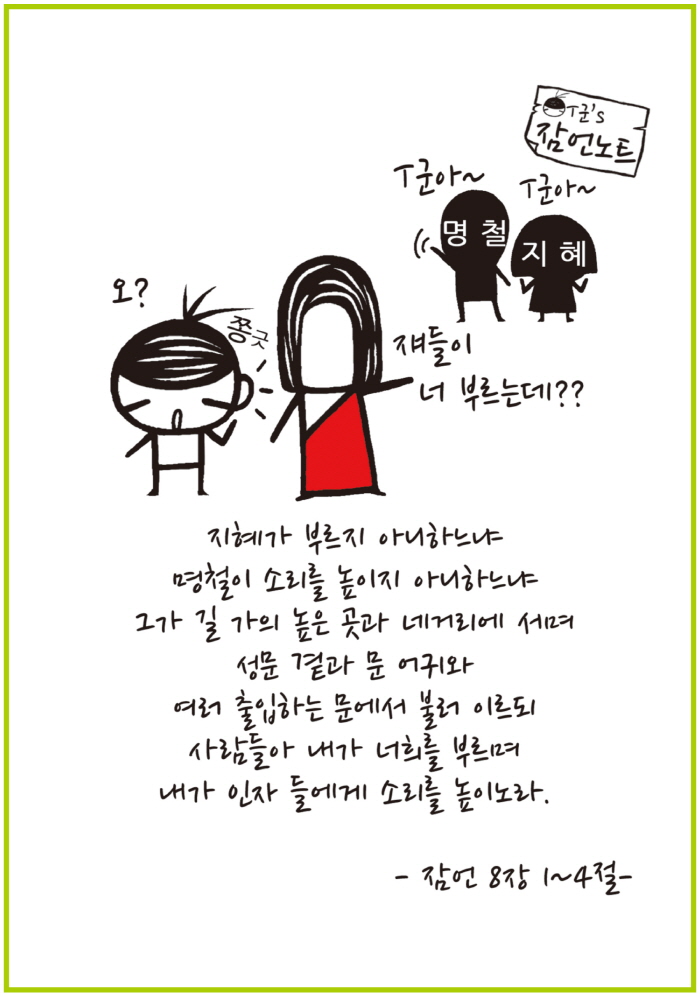 T군's
잠언노트
T군아~
T군아~
명철
지혜
오?
쫑긋
쟤들이
너 부르는데??
지혜가 부르지 아니하느냐
명철이 소리를 높이지 아니하느냐
그가 길 가의 높은 곳과 네거리에 세며
성문 곁과 문 어귀와
여러 출입하는 문에서 불러 이르되
사람들아 내가 너희를 부르며
내가 인자 들에게 소리를 높이노라.
- 잠언 8장 1~4절-